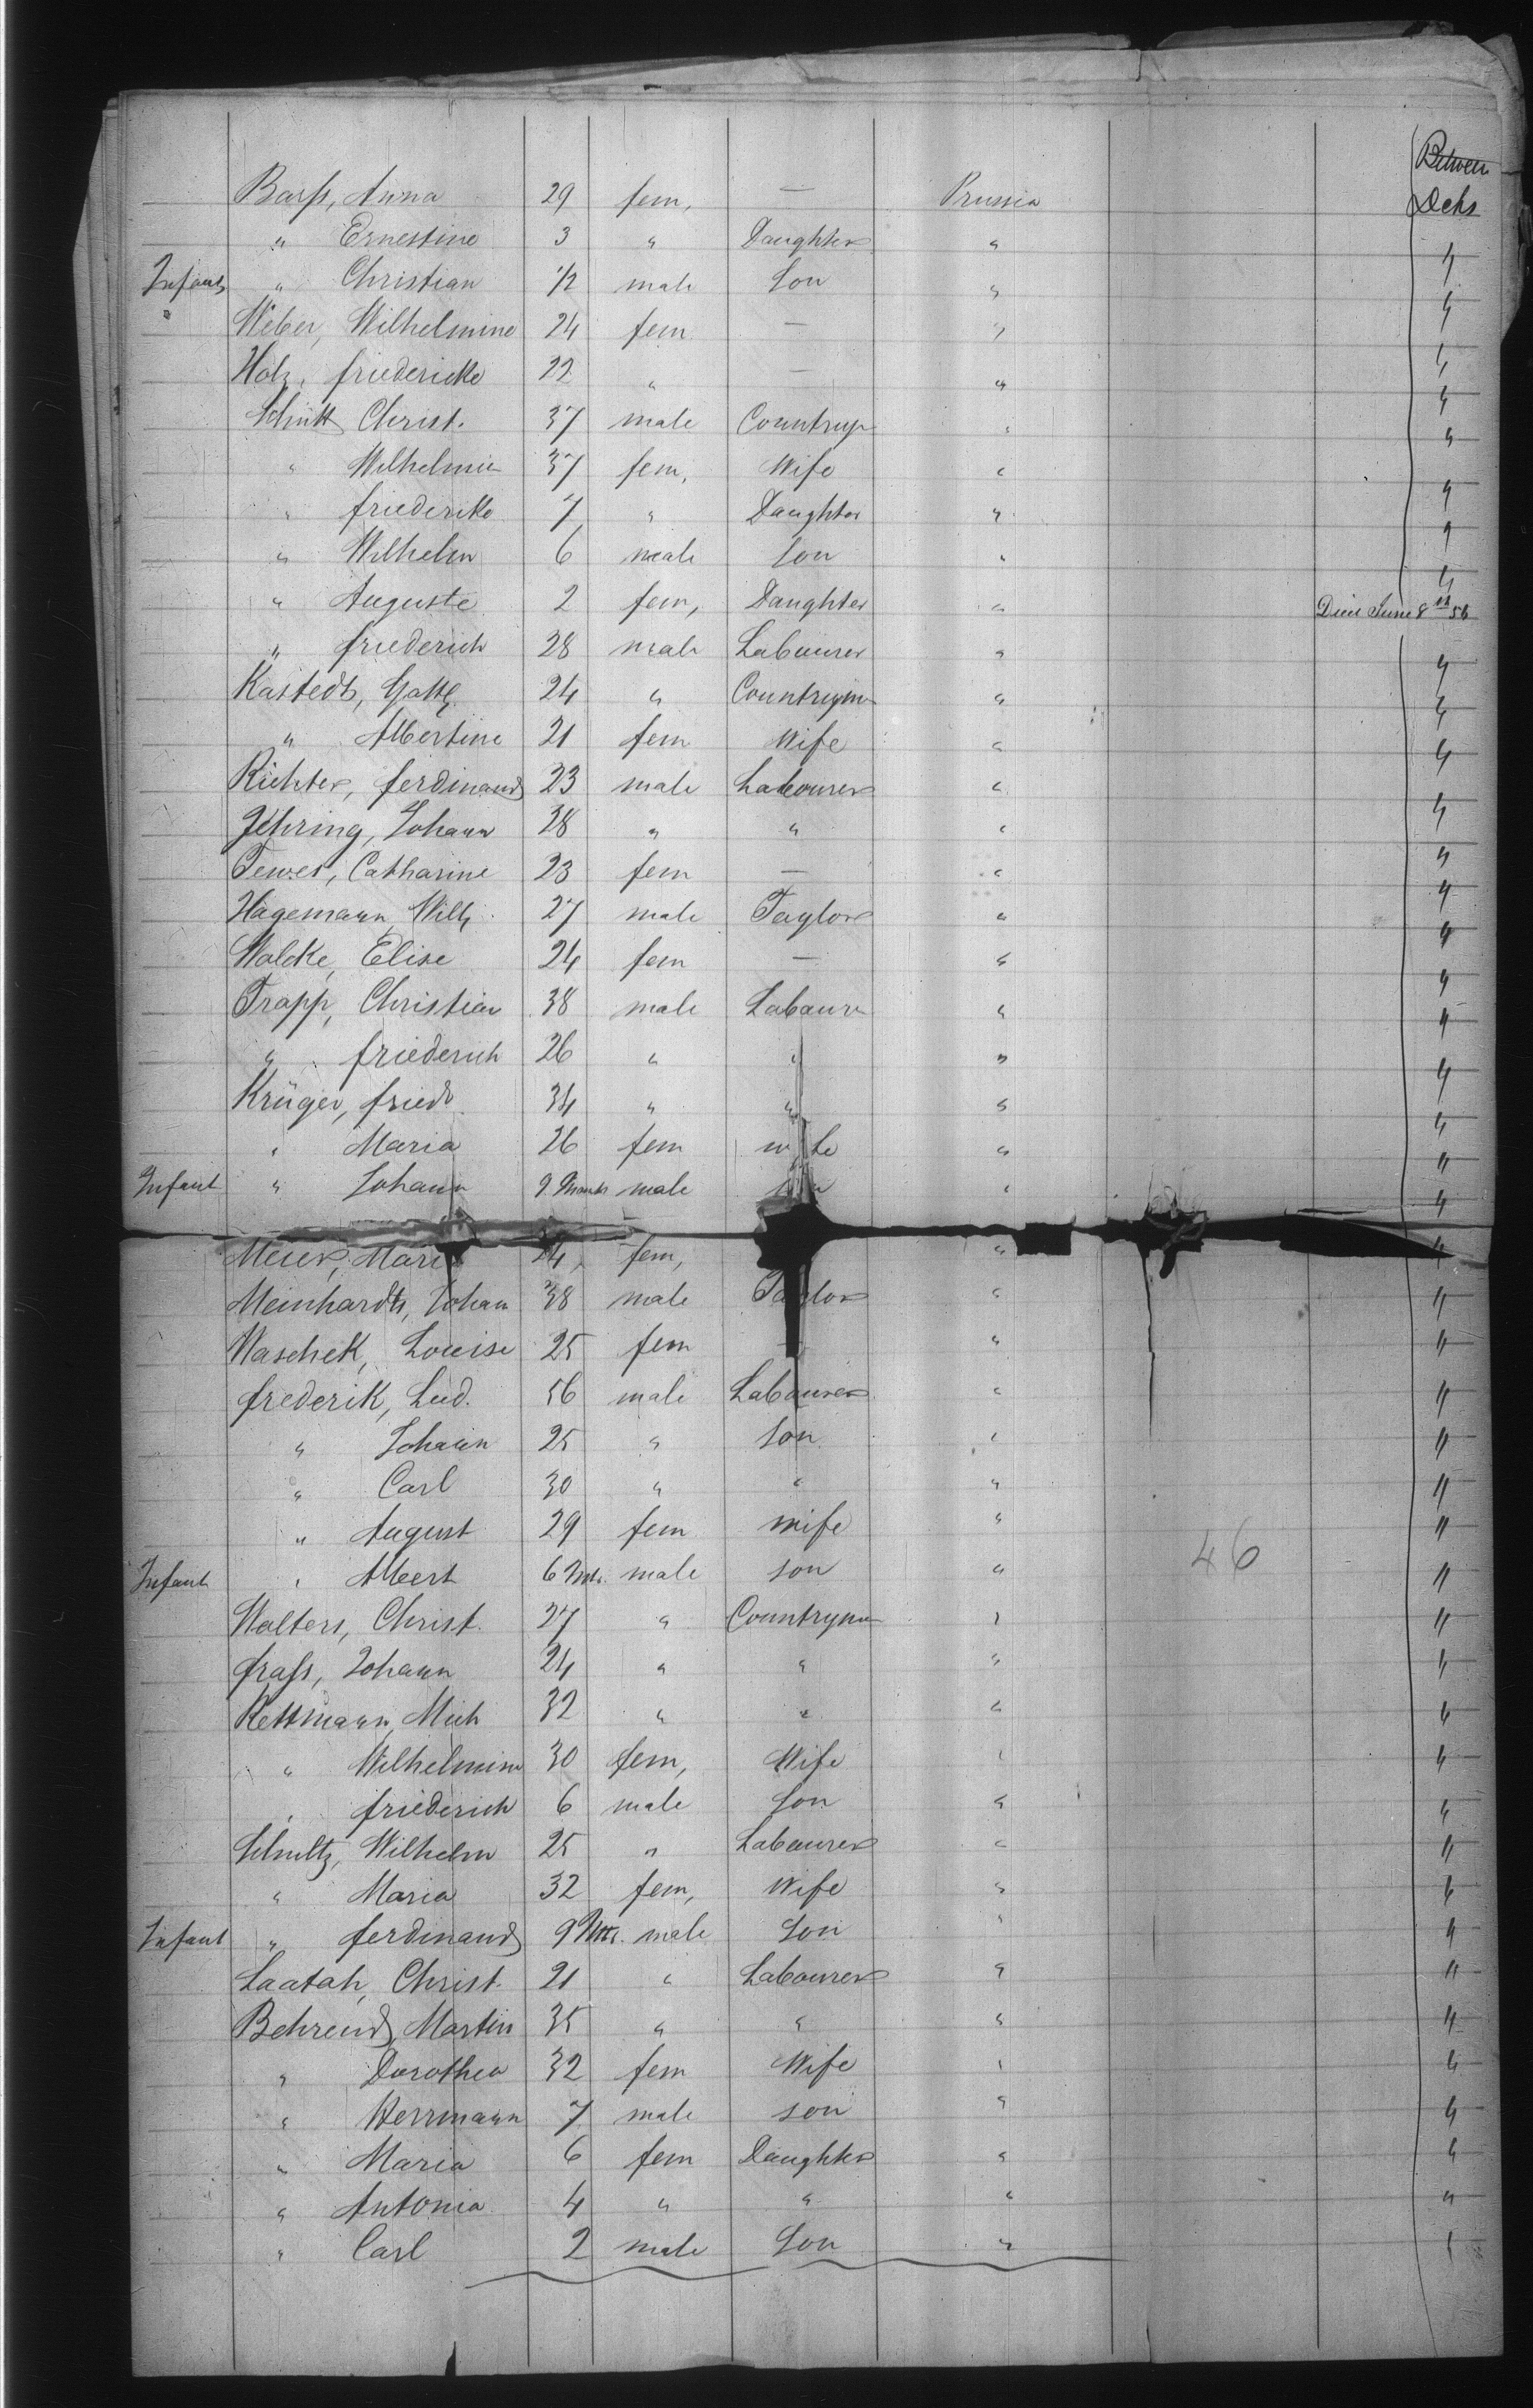 Between
Barss, Anna 29 fem, — Prussia Decks
" Ernestine 3 " Daughter " "
Infant " Christian 1/2 male Son " "
" Weber, Wilhelmine 24 fem — " "
Holz, friedericke 22 " — " "
Schütt Christ. 37 male Countrym " "
" Wilhelmin 37 fem, Wife " "
" friederike 7 " Daughter " "
" Wilhelm 6 male Son " "
" Auguste 2 fem, Daughter " Died June 8th 56
" friederich 28 male Labourer " "
Kastedt, 24 " Countrym " "
" Albertine 21 fem Wife " "
Richter, ferdinand 23 male Labourer " "
Jehring, Johann 28 " " " "
Tewes, Catharine 23 fem — " "
Hagemann, Wilh 27 male Taylor " "
Wolcke, Elise 24 fem — " "
Trapp, Christian 38 male Labour " "
" friederich 26 " " " "
Krüger, fried 34 " " " "
" Maria 26 fem wife " "
Infant " Johann 9 Month male son " "
Meier, Marie 24, fem, " "
Meinhardt, Johann 38 male Taylor " "
Waschek, Louise 25 fem " "
frederik, Lud. 56 male Labourer " "
" Johann 25 " Son " "
" Carl 30 " " " "
" August 29 fem wife " "
46
Infant " Albert 6 Mts. male son " "
Wolters, Christ. 27 " Countrym " "
frass, Johann 24 " " " "
Kettmann, Mich 32 " " " "
" Wilhelmine 30 fem, Wife " "
" friederich 6 male Son " "
Schultz, Wilhelm 25 " Labourer " "
" Maria 32 fem, Wife " "
Infant " ferdinand 9 Mts. male Son " "
Laatah, Christ. 21 " Labourer " "
Behrend, Martin 35 " " " "
" Dorothea 32 fem Wife " "
" Herrmann 7 male son " "
" Maria 6 fem Daughter " "
" Antonia 4 " " " "
" Carl 2 male Son " "